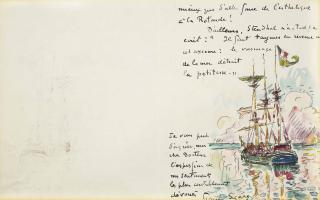 mieux que d'aller faire de l'esthétique
à la Rotonde !
D'ailleurs, Stendhal n'a-t-il
écrit : " Il faut toujours en revenir à
cet axiome : le voisinage
de la mer détruit
la petitesse. "
Je vous prie
mon
cher Docteur
l'expression de
mes sentiments
les plus cordialement
dévoués